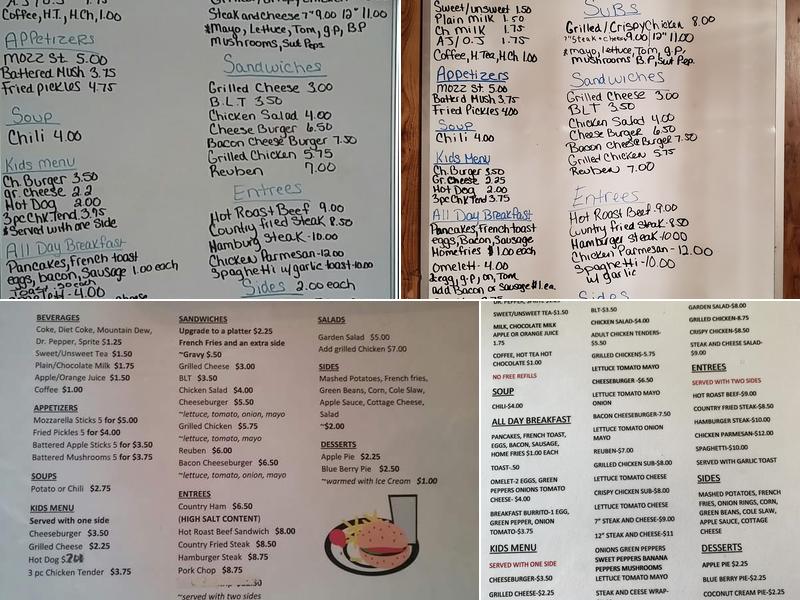 Coffee, H.T., H.Ch, 1.00
APPetizers
Mozz St. 5.00
Battered Mush 3.75
Fried pickles 4.75
Soup
Chili 4.00
Kids menu
Ch. Burger 3.50
gr. Cheese 2.2
Hot Dog 2.00
3pc Chk Tend 3.75
*Served with one Side
All Day Breakfast
Pancakes, French toast
eggs, bacon, Sausage 1.00 each
Toast .50 each
4.00
Steak and cheese 7" 9.00 12" 11.00
*Mayo, Lettuce, Tom, g.P, B.P
Mushrooms, Swt Peps
Sandwiches
Grilled Cheese 3.00
B.L.T 3.50
Chicken Salad 4.00
Cheese Burger 6.50
Bacon Cheese Burger 7.50
Grilled Chicken 5.75
Reuben 7.00
Entrees
Hot Roast Beef 9.00
Country fried Steak 8.50
Hamburg Steak -10.00
Chicken Parmesan -12.00
Spaghetti w/garlic toast-10.00
Sides 2.00 each
Sweet/unsweet 1.50
Plain milk 1.50
Ch milk 1.75
AJ/OJ 1.75
Coffee, H.Tea, H.Ch 1.00
Appetizers
Mozz St. 5.00
Batterd Mush 3.75
Fried Pickles 4.00
Soup
Chili 4.00
Kids Menu
Ch. Burger 3.50
Gr. Cheese 2.25
Hot Dog 2.00
3pc Chk Tend 3.75
All Day Breakfast
Pancakes, French toast
eggs, Bacon, Sausage
Homefries $1.00 each
Omelett - 4.00
2 egg, g.p, on, Tom
add Bacon or Sausage $1. ea.
Subs
Grilled/Crispy Chicken 8.00
7" Steak + cheese 9.00 12" 11.00
*mayo, lettuce, Tom, g.p,
mushrooms B.P, Swt Pep.
Sandwiches
Grilled Cheese 3.00
BLT 3.50
Chicken Salad 4.00
Cheese Burger 6.50
Bacon Cheese Burger 7.50
Grilled Chicken 5.75
Reuben 7.00
Entrees
Hot Roast Beef -9.00
Country fried steak -8.50
Hamburger steak -10.00
Chicken Parmesan -12.00
Spaghetti -10.00
w/ garlic
Sides
BEVERAGES
Coke, Diet Coke, Mountain Dew,
Dr. Pepper, Sprite $1.25
Sweet/Unsweet Tea $1.50
Plain/Chocolate Milk $1.75
Apple/Orange Juice $1.50
Coffee $1.00
APPETIZERS
Mozzarella Sticks 5 for $5.00
Fried Pickles 5 for $4.00
Battered Apple Sticks 5 for $3.50
Battered Mushrooms 5 for $3.75
SOUPS
Potato or Chili $2.75
KIDS MENU
Served with one side
Cheeseburger $3.50
Grilled Cheese $2.25
Hot Dog $2.00
3 pc Chicken Tender $3.75
SANDWICHES
Upgrade to a platter $2.25
French Fries and an extra side
~Gravy $.50
Grilled Cheese $3.00
BLT $3.50
Chicken Salad $4.00
Cheeseburger $5.50
~lettuce, tomato, onion, mayo
Grilled Chicken $5.75
~lettuce, tomato, mayo
Reuben $6.00
Bacon Cheeseburger $6.50
~lettuce, tomato, onion, mayo
ENTREES
Country Ham $6.50
(HIGH SALT CONTENT)
Hot Roast Beef Sandwich $8.00
Country Fried Steak $8.50
Hamburger Steak $8.75
Pork Chop $8.75
~served with two sides
SALADS
Garden Salad $5.00
Add grilled Chicken $7.00
SIDES
Mashed Potatoes, French fries,
Green Beans, Corn, Cole Slaw,
Apple Sauce, Cottage Cheese,
Salad
~$2.00
DESSERTS
Apple Pie $2.25
Blue Berry Pie $2.50
~warmed with Ice Cream $1.00
DR. PEPPER, SPRITE $1.25
SWEET/UNSWEET TEA-$1.50
MILK, CHOCOLATE MILK
APPLE OR ORANGE JUICE
1.75
COFFEE, HOT TEA HOT
CHOCOLATE $1.00
NO FREE REFILLS
SOUP
CHILI-$4.00
ALL DAY BREAKFAST
PANCAKES, FRENCH TOAST,
EGGS, BACON, SAUSAGE,
HOME FRIES $1.00 EACH
TOAST-.50
OMELET-2 EGGS, GREEN
PEPPERS ONIONS TOMATO
CHEESE- $4.00
BREAKFAST BURRITO-1 EGG,
GREEN PEPPER, ONION
TOMATO-$3.75
KIDS MENU
SERVED WITH ONE SIDE
CHEESEBURGER-$3.50
GRILLED CHEESE-$2.25
BLT-$3.50
CHICKEN SALAD-$4.00
ADULT CHICKEN TENDERS-
$5.50
GRILLED CHICKEN-5.75
LETTUCE TOMATO MAYO
CHEESEBURGER -$6.50
LETTUCE TOMATO MAYO
ONION
BACON CHEESEBURGER-7.50
LETTUCE TOMATO ONION
MAYO
REUBEN-$7.00
GRILLED CHICKEN SUB-$8.00
LETTUCE TOMATO CHEESE
CRISPY CHICKEN SUB-$8.00
LETTUCE TOMATO CHEESE
7" STEAK AND CHEESE-$9.00
12" STEAK AND CHEESE-$11
ONIONS GREEN PEPPERS
SWEET PEPPERS BANANA
PEPPERS MUSHROOMS
LETTUCE TOMATO MAYO
STEAK AND CEESE WRAP-
GARDEN SALAD-$8.00
GRILLED CHICKEN-8.75
CRISPY CHICKEN-$8.50
STEAK AND CHEESE SALAD-
$9.00
ENTREES
SERVED WITH TWO SIDES
HOT ROAST BEEF-$9.00
COUNTRY FRIED STEAK-$8.50
HAMBURGER STEAK-$10.00
CHICKEN PARMESAN-$12.00
SPAGHETTI-$10.00
SERVED WITH GARLIC TOAST
SIDES
MASHED POTATOES, FRENCH
FRIES, ONION RINGS, CORN,
GREEN BEANS, COLE SLAW,
APPLE SAUCE, COTTAGE
CHEESE
DESSERTS
APPLE PIE $2.25
BLUE BERRY PIE-$2.25
COCONUT CREAM PIE-$2.25